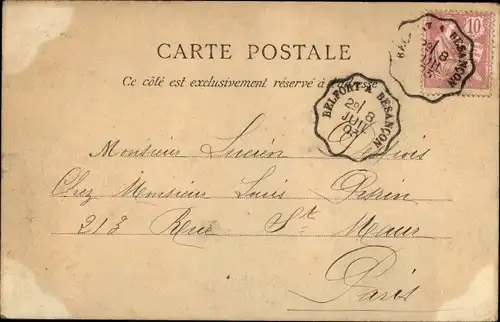 CARTE POSTALE
Ce côté est exclusivement réservé à
10
BELFORT A BESANÇON
2º/ 8
JUIL
03
BESANÇON
8
JUIL
03
Monsieur Lucien
Chez Monsieur Louis Persin
213 Rue St Maur
Paris